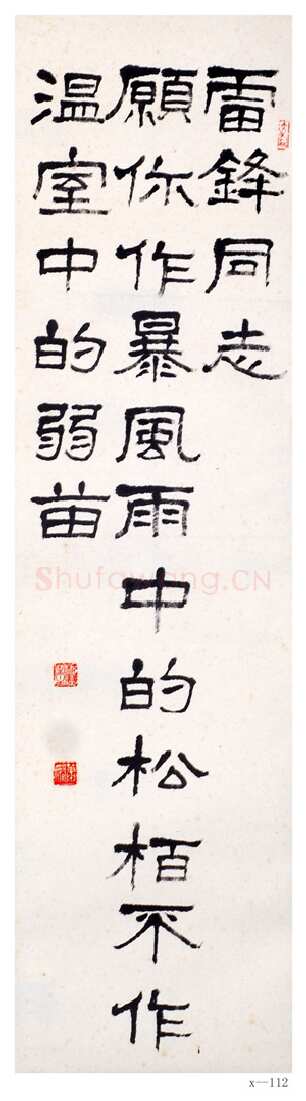 雷鋒同志
願你作暴風雨中的松栢不作
温室中的弱苗
Shufawang.CN
x—112